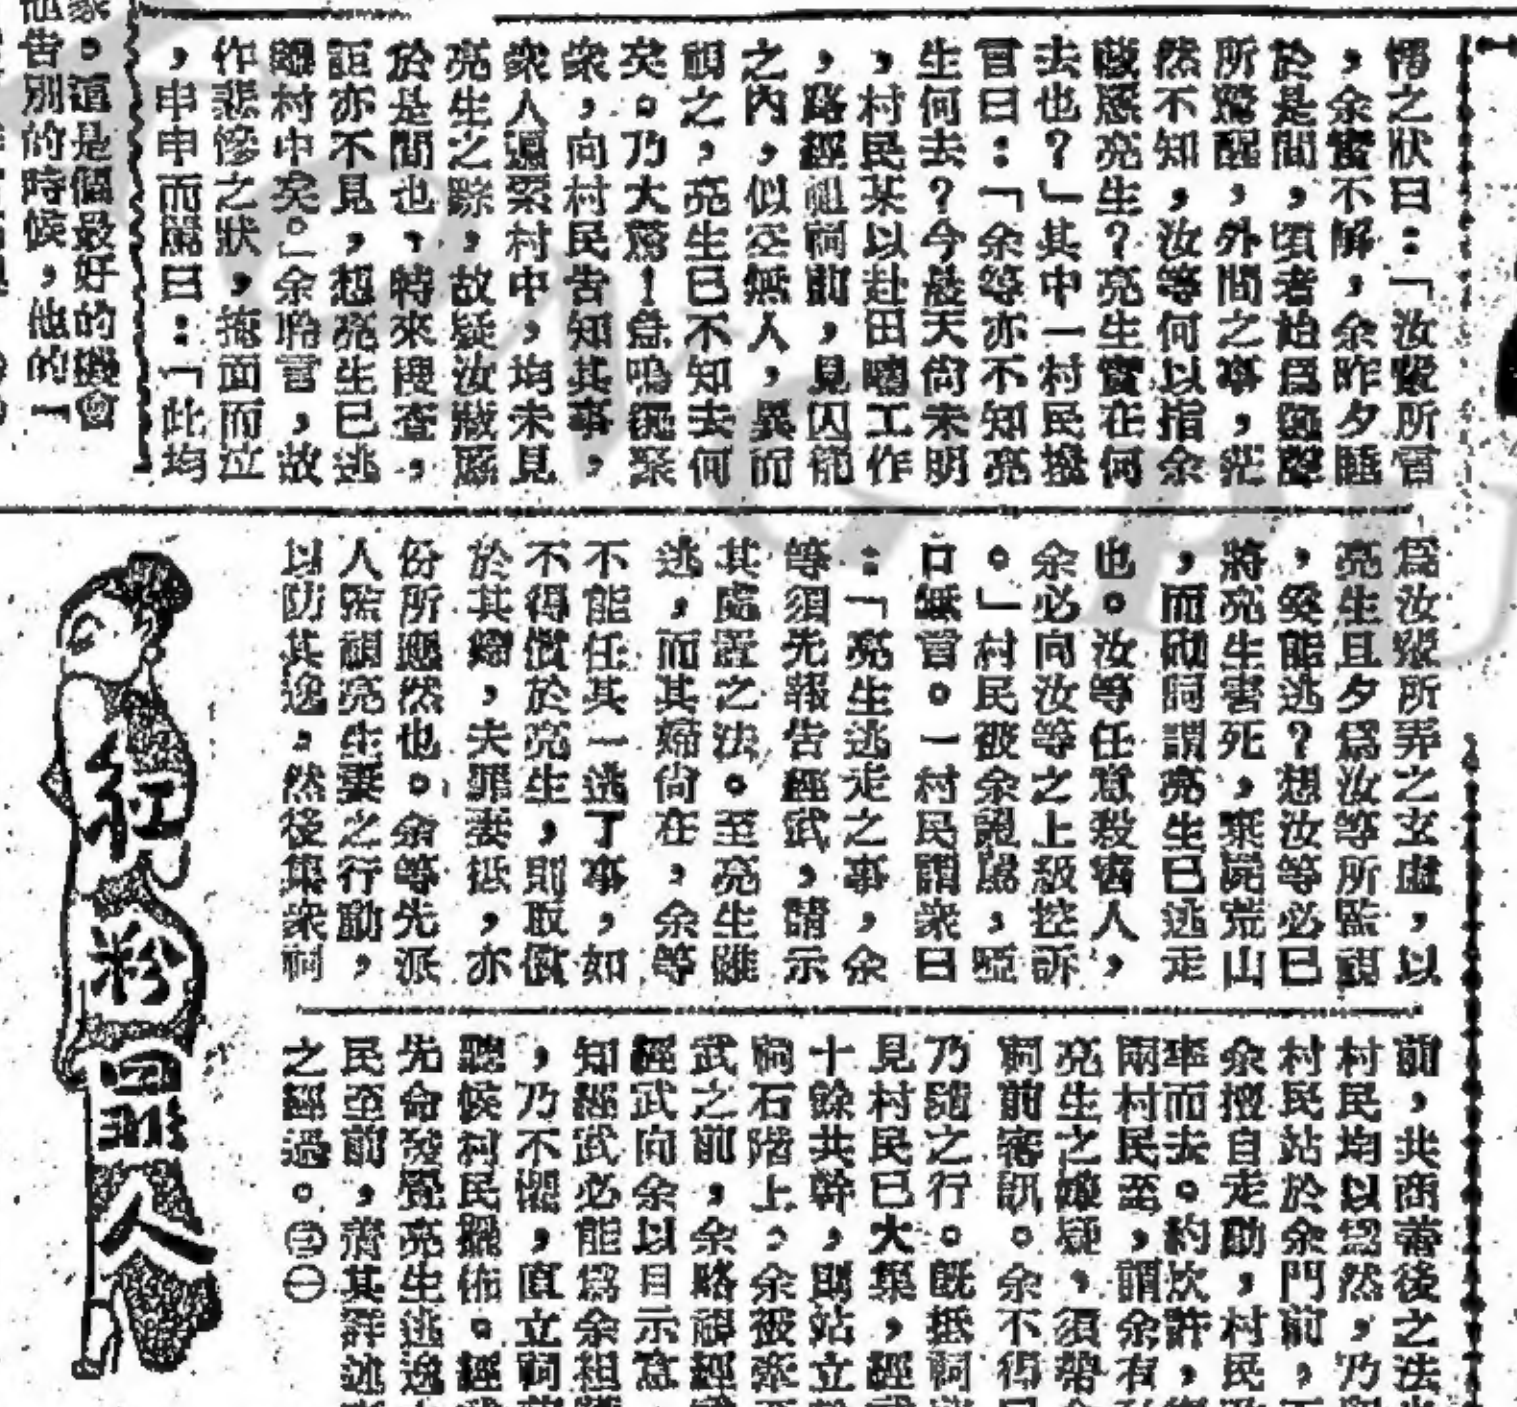 愕之狀曰：「汝輩所言
，余實不解，余昨夕睡
於是間，頃者始爲鑼聲
所驚醒，外間之事，茫
然不知，汝等何以指余
藏慝亮生？亮生實在何
去也？」其中一村民搖
首曰：「余等亦不知亮
生何去？今晨天尙未明
，村民某以赴田疇工作
，路經祖祠前，見囚籠
之內，似空無人，異而
視之，亮生已不知去何
矣。乃大驚！急鳴鑼聚
衆，向村民告知其事，
衆人遍索村中，均未見
亮生之踪，故疑汝藏匿
於是間也，特來搜查，
詎亦不見，想亮生已逃
離村中矣。」余聆言，故
作悲慘之狀，掩面而泣
，申申而罵曰：「此均
爲汝輩所弄之玄虛，以
亮生旦夕爲汝等所監視
，奚能逃？想汝等必已
將亮生害死，棄屍荒山
，而砌詞謂亮生已逃走
也。汝等任意殺害人，
余必向汝等之上級控訴
。」村民被余謾罵，啞
口無言。一村民謂衆曰
：「亮生逃走之事，余
等須先報告經武，請示
其處置之法。至亮生雖
逃，而其婦尙在，余等
不能任其一逃了事，如
不得償於亮生，則取償
於其婦，夫罪妻抵，亦
份所應然也。余等先派
人監視亮生妻之行動，
以防其逸，然後集衆祠
前，共商善後之法
村民均以爲然，乃
村民站於余門前，
余擅自走動，村民
率而去。約炊許，
兩村民至，謂余有
亮生之嫌疑，須帶
祠前審訊。余不得
乃隨之行。旣抵祠
見村民已大集，經
十餘共幹，則站立
祠石階上，余被來
武之前，余略視經
經武向余以目示意
知經武必能爲余袒
，乃不懼，直立祠
聽候村民擺佈。經
先命發覺亮生逃逸
民至前，着其詳述
之經過。㊂㊀
紅粉四罪人
家。這是個最好的機會
他告別的時候，他的「